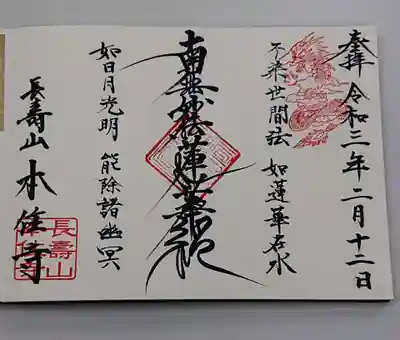 奉拝 令和三年二月十二日
不染世間法 如蓮華在水
南無妙法蓮華経
如日月光明 能除諸幽冥
長壽山 本住寺
長壽山